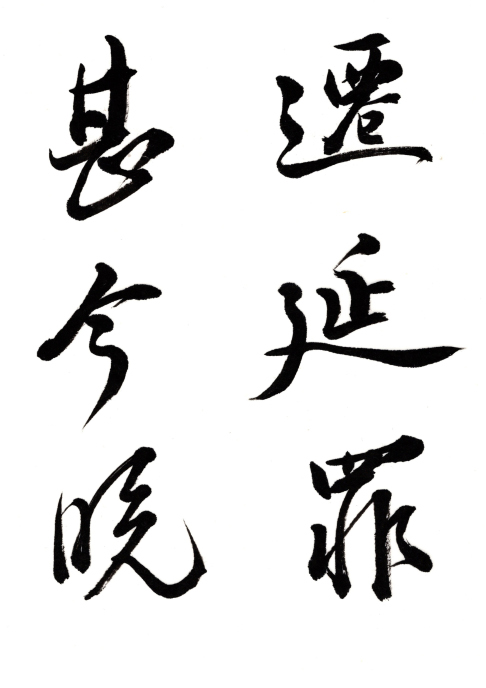 遷延罪
甚今晚